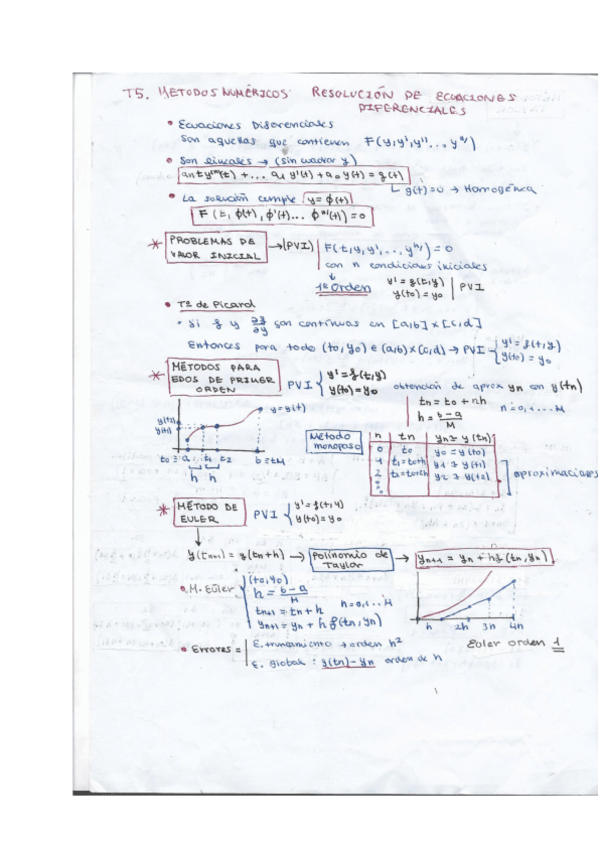 T5. METODOS NUMÉRICOS: RESOLUCIÓN DE ECUACIONES
DIFERENCIALES
• Ecuaciones Diferenciales
Son aquellas que contienen F(y,y',y'',..., yⁿ⁾)
• Son lineales → (sin cuadrar y)
an t y⁽ⁿ⁾(t) + ... a1 y'(t) + a0 y(t) = g(t)
↳ g(t)=0 → Homogénea
• La solución cumple y = ϕ(t)
F(t, ϕ(t), ϕ'(t)... ϕⁿ⁾(t)) = 0
* PROBLEMAS DE VALOR INICIAL → (PVI) F(t,y,y',..,yⁿ⁾) = 0
con n condiciones iniciales
1er Orden y' = f(t,y) PVI
y(t0) = y0
• Tª de Picard
• Si f y ∂f/∂y son continuas en [a,b] x [c,d]
Entonces para todo (t0,y0) ∈ (a,b) x (c,d) → PVI { y' = f(t,y)
y(t0) = y0
* MÉTODOS PARA EDOS DE PRIMER ORDEN PVI { y' = f(t,y)
y(t0) = y0
obtención de aprox yn con y(tn)
tn = t0 + nh
h = b-a/M
n = 0,1...M
y = y(t)
y(t2)
y(t1)
t0 = a t1 t2 b = tM
h h
Método monopaso
n tn yn ≈ y(tn)
0 t0 y0 = y(t0)
1 t1 = t0+h y1 ≈ y(t1)
2 t2 = t0+2h y2 ≈ y(t2)
aproximaciones
* MÉTODO DE EULER PVI { y' = f(t,y)
y(t0) = y0
y(tn+1) = y(tn+h) → Polinomio de Taylor → yn+1 = yn + hf(tn,yn)
• M. Euler { (t0,y0)
h = b-a/M
tn+1 = tn + h n = 0,1...M
yn+1 = yn + h f(tn,yn)
h 2h 3h 4h
Euler orden 1
• Errores = E. truncamiento → orden h²
E. Global : y(tn) - yn orden de h
1